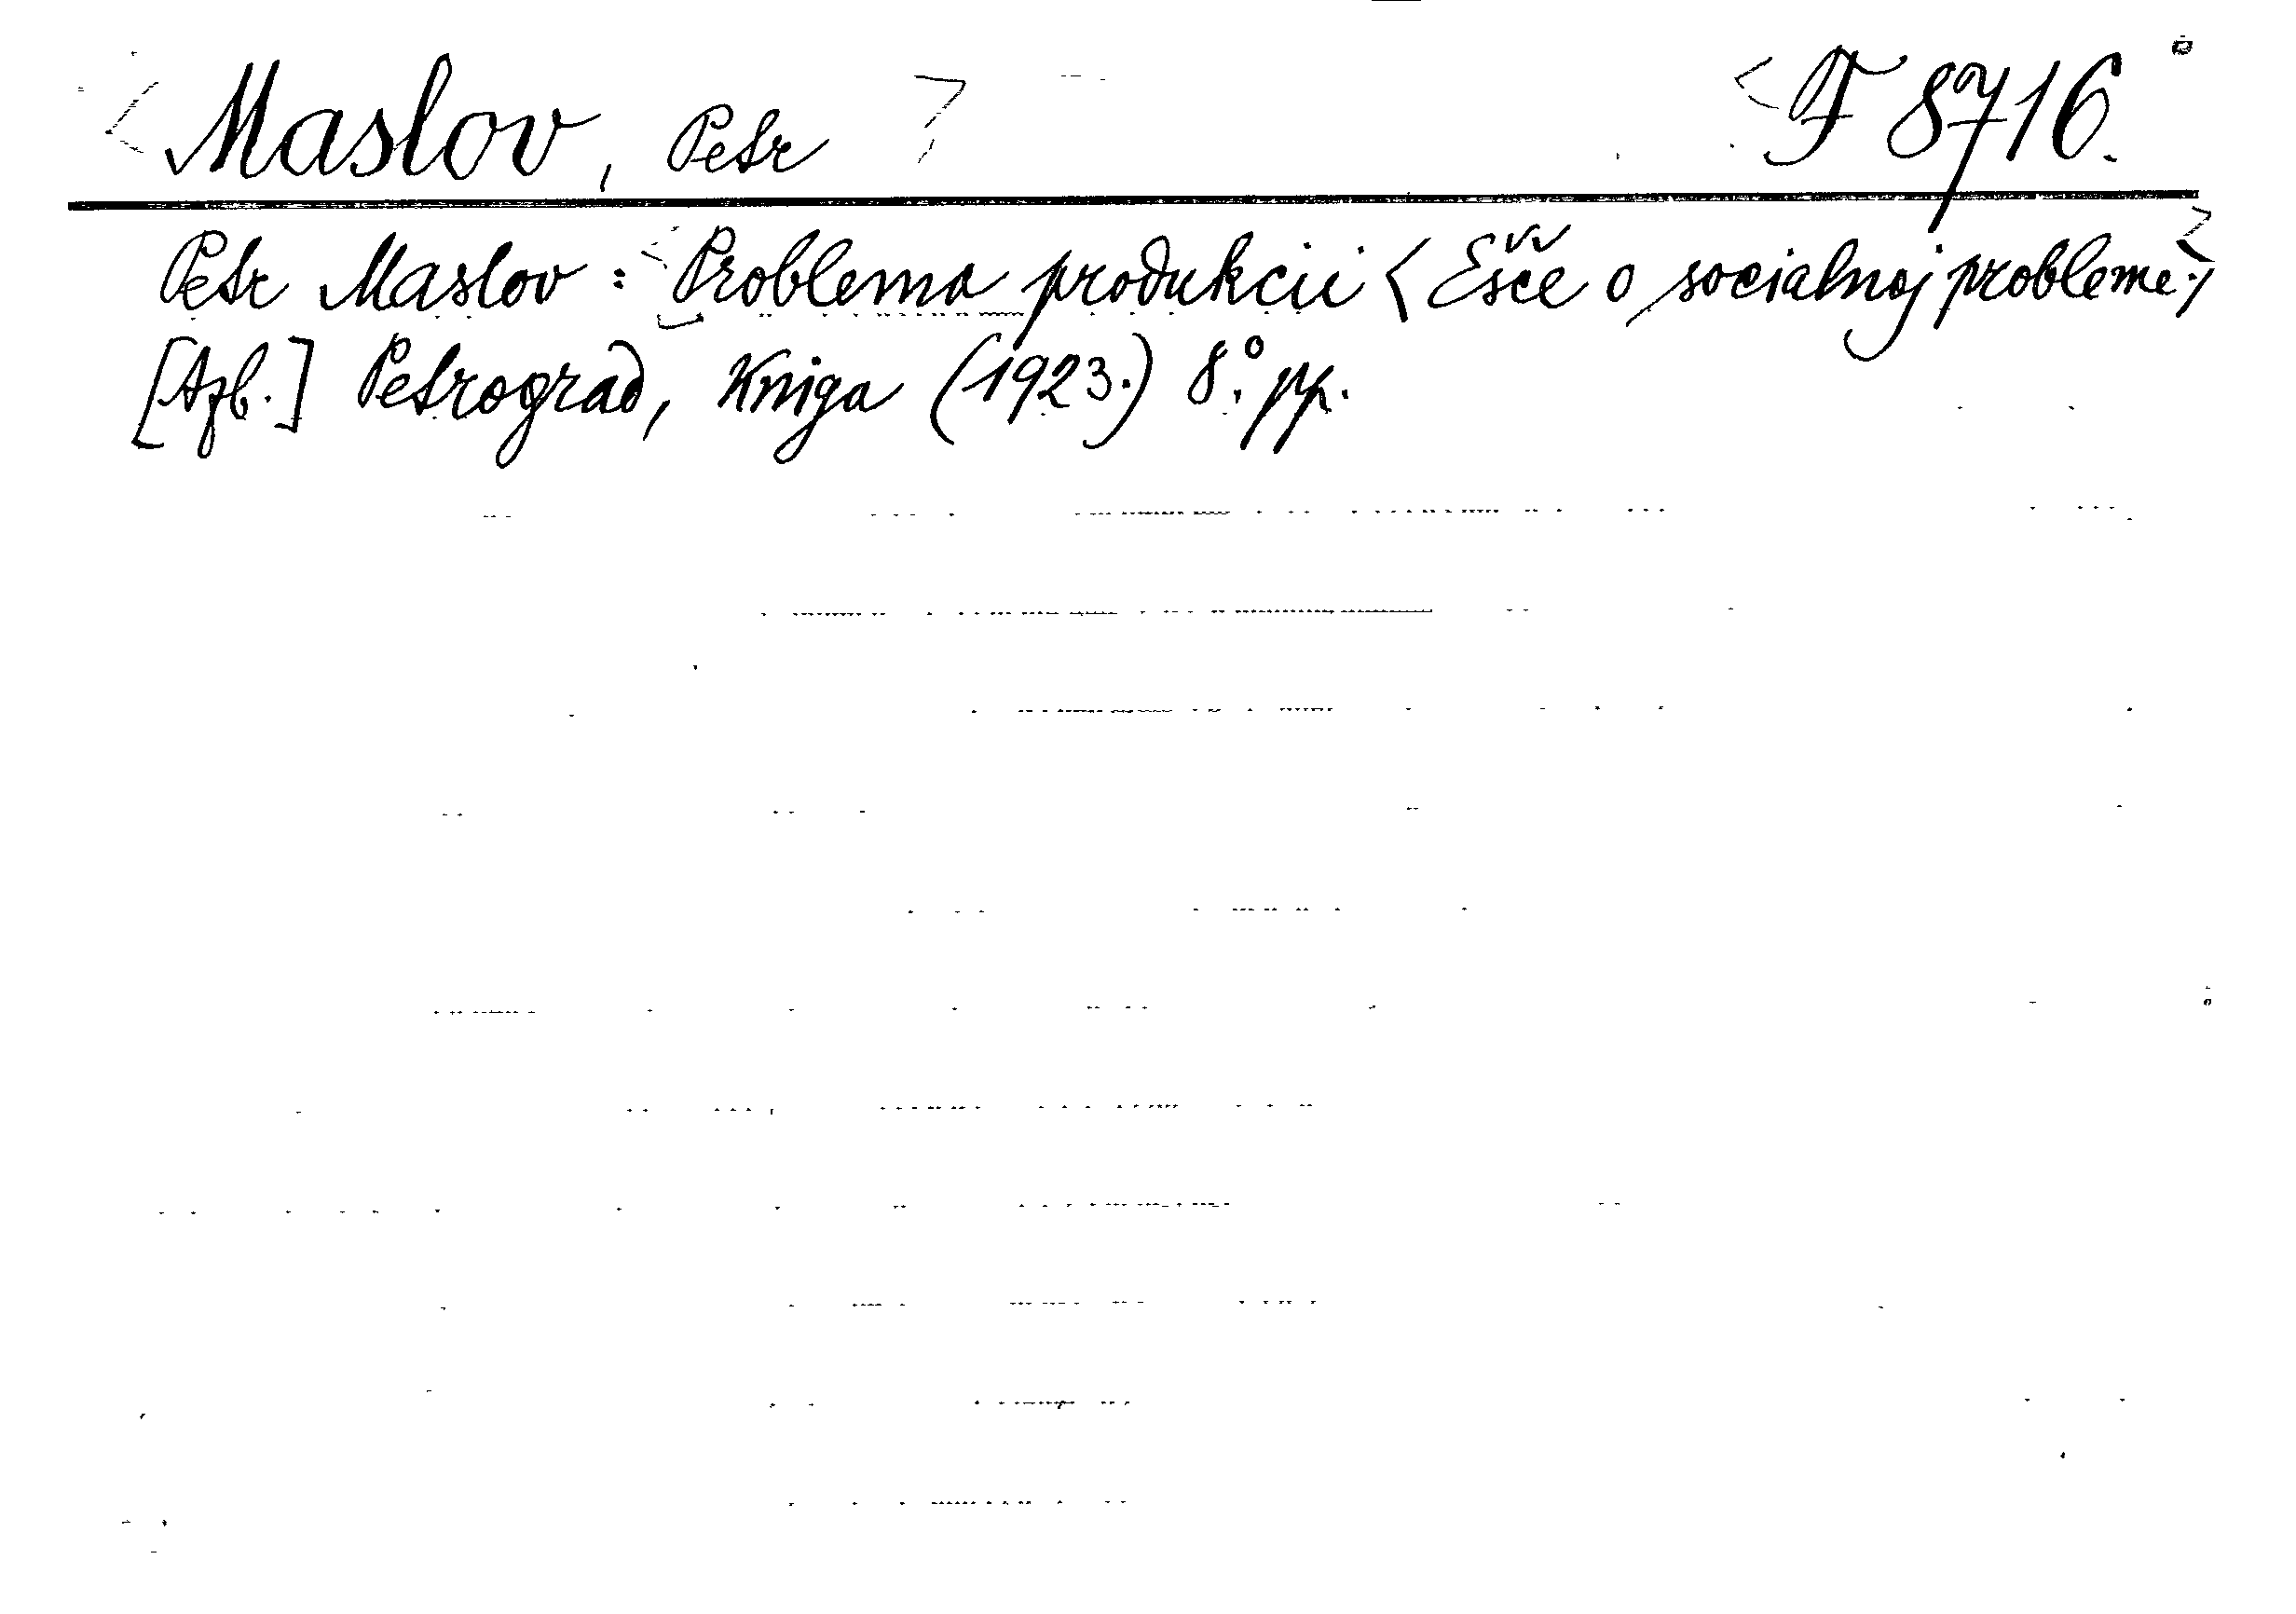 <Maslov, Petr> <F 8716.
Petr Maslov: <Problema produkcii <Ešče o socialnoj probleme.>>
[Azb.] Petrograd, Kniga (1923.) 8°. pp.